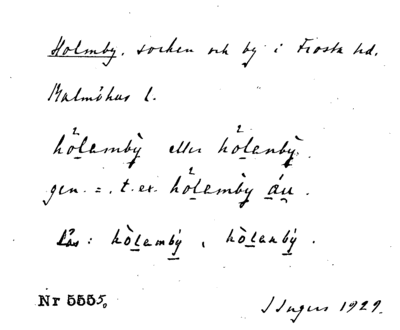 Holmby, socken och by i Frosta hd.
Malmöhus l.
hòlambỳ eller hòlanbỳ.
gen. =. t. ex. hòlambỳ áu.
Läs: hòlambý, hòlanbý.
Nr 5555.
I Ingers 1929.